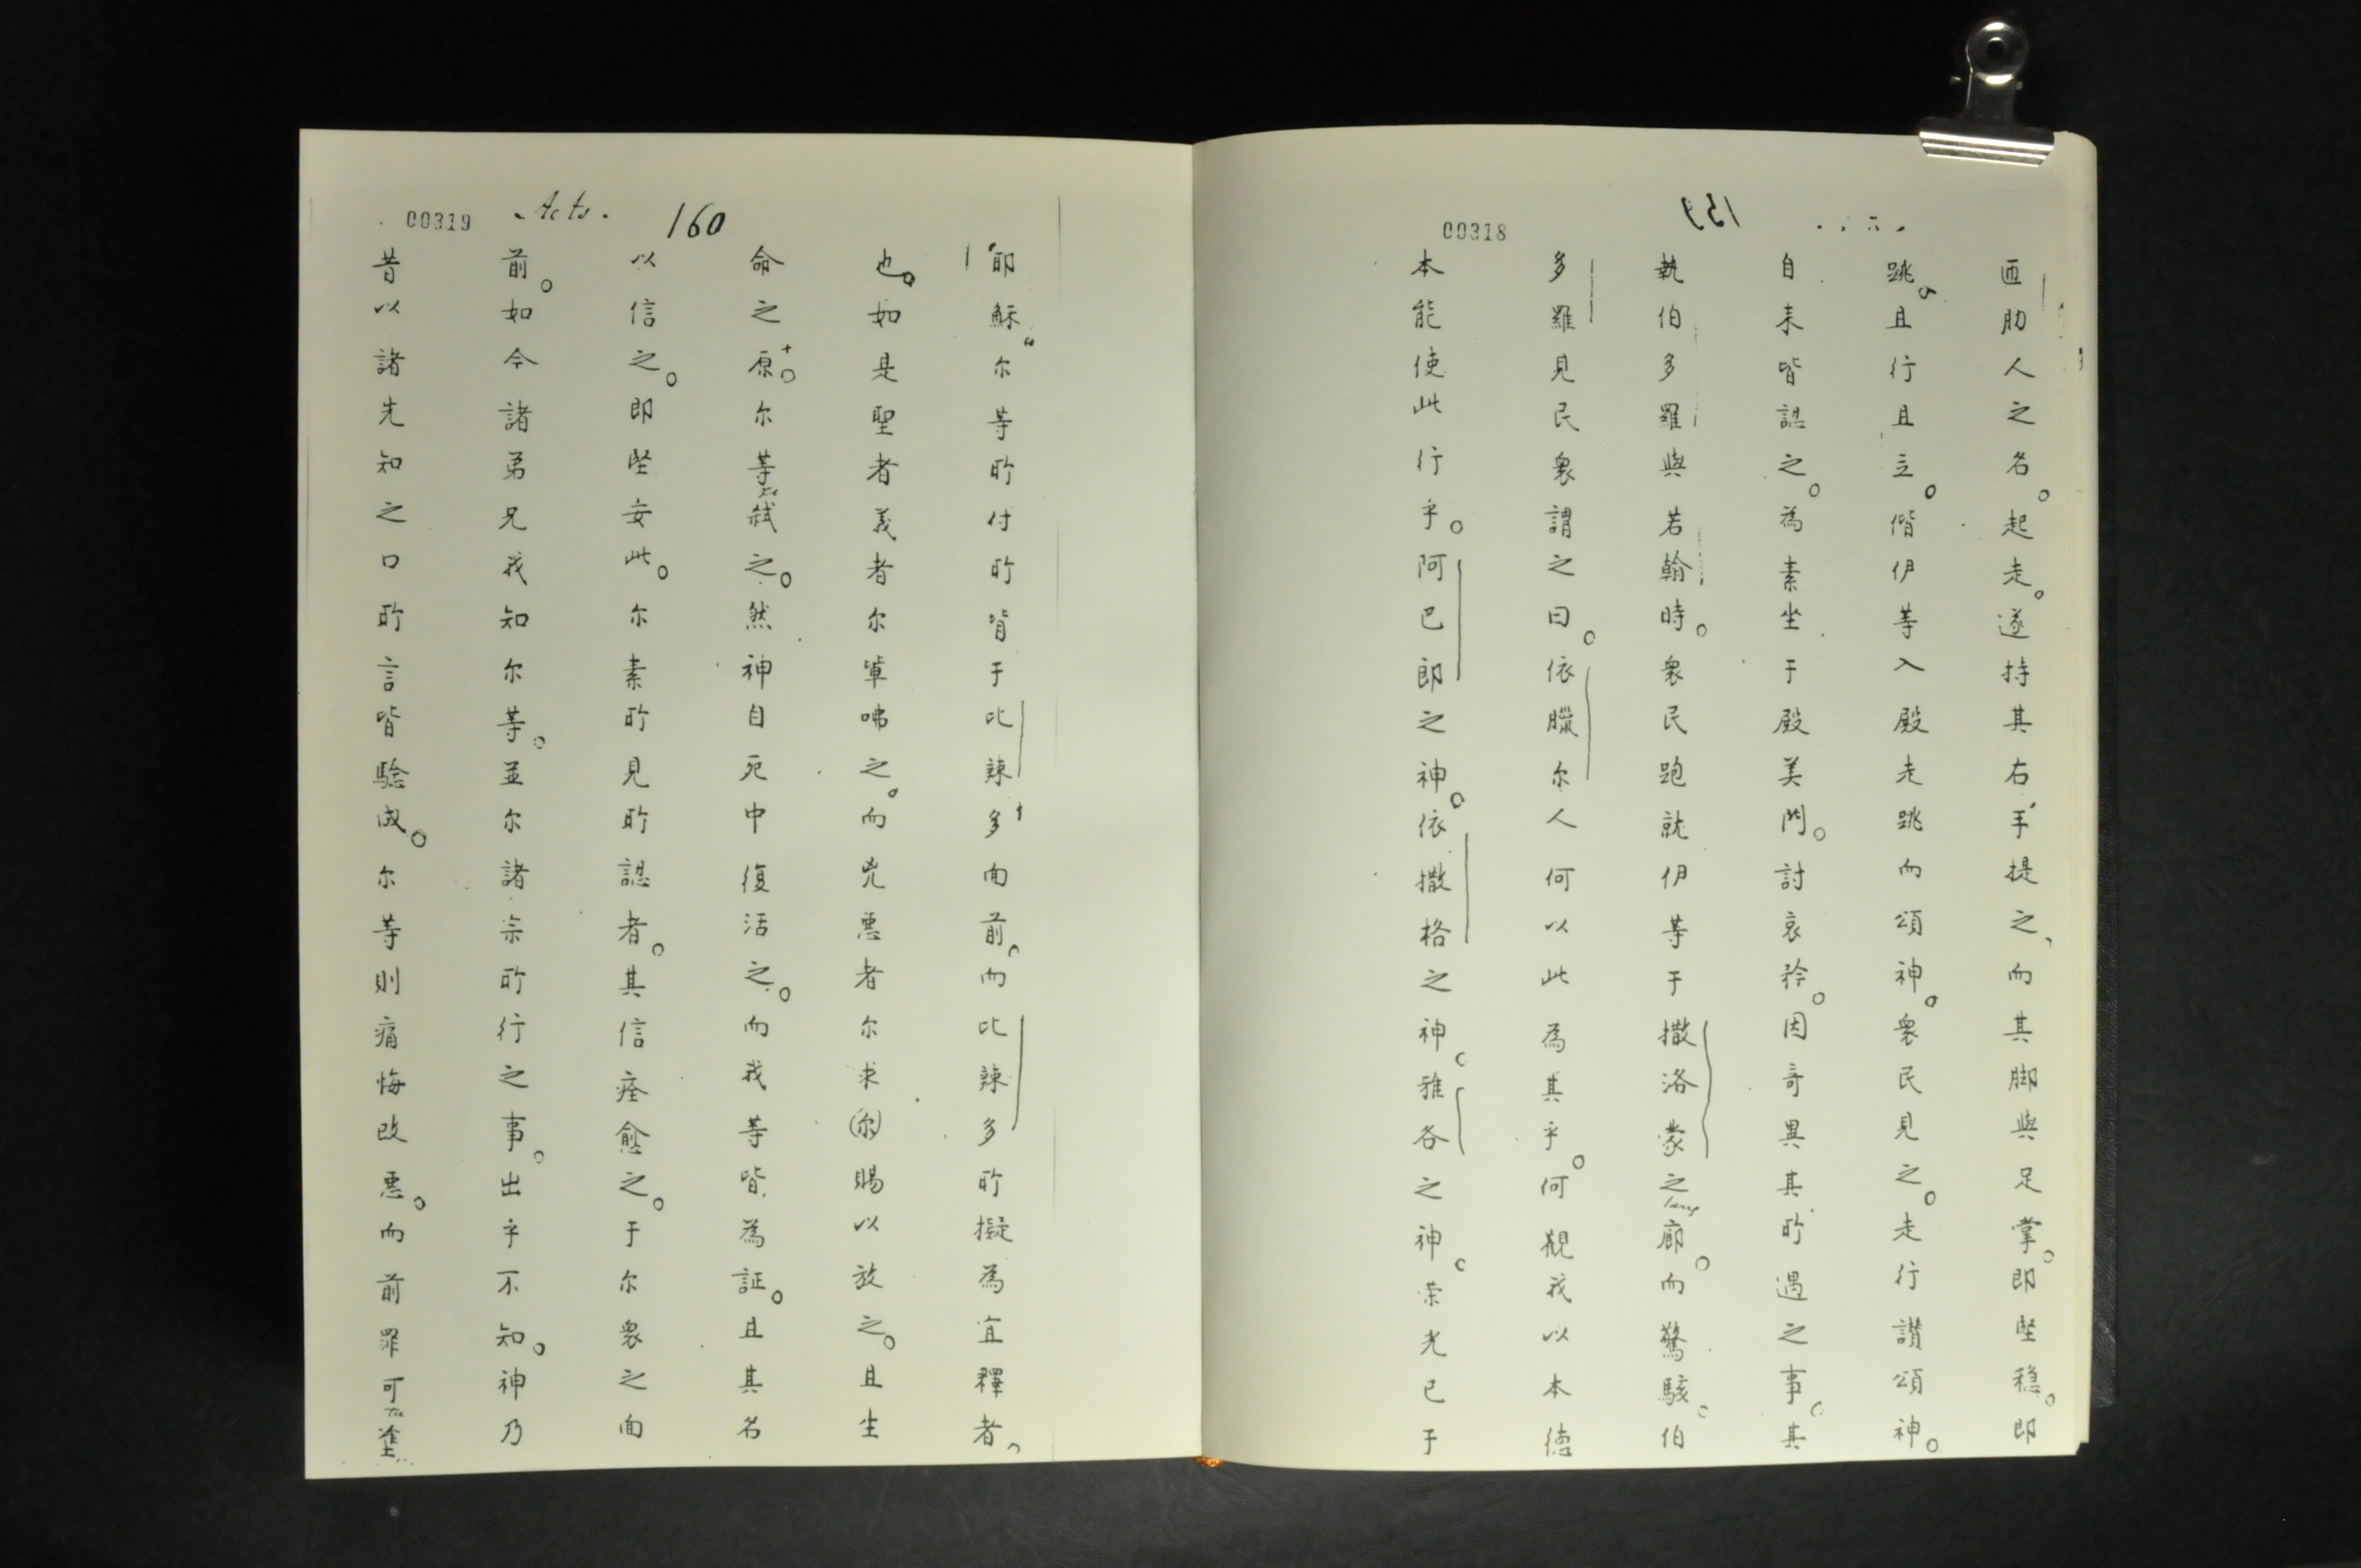 00318
159
匝肋人之名。起走。遂持其右手提之、而其脚與足掌。即坚穏。即
跳。且行且立。偕伊等入殿走跳而頌神。衆民見之。走行讃頌神。
自来皆認之。為素坐于殿美門。討哀矜。因奇異其所遇之事。其
執伯多羅與若翰時。衆民跑就伊等于撒洛蒙之廊。而驚駭。伯
多羅見民衆謂之曰。依臘尔人何以此為其乎。何觀我以本德
本能使此行乎。阿巴郎之神。依撒格之神。雅各之神。荣光已于
00319
Acts.
160
耶穌尔等所付所皆于比辣多面前。而比辣多所擬為宜釋者、
也。如是聖者義者尔單咈之。而兇悪者尔求尔賜以放之。且生
命之原。尔等弑之。然神自死中復活之。而我等皆為証。且其名
以信之。即坚妄此。尔素所見所認者。其信痊愈之。于尔衆之面
前。如今諸弟兄我知尔等。並尔諸宗所行之事。出乎不知。神乃
昔以諸先知之口所言皆騐成。尔等則痛悔改悪。而前罪可塗